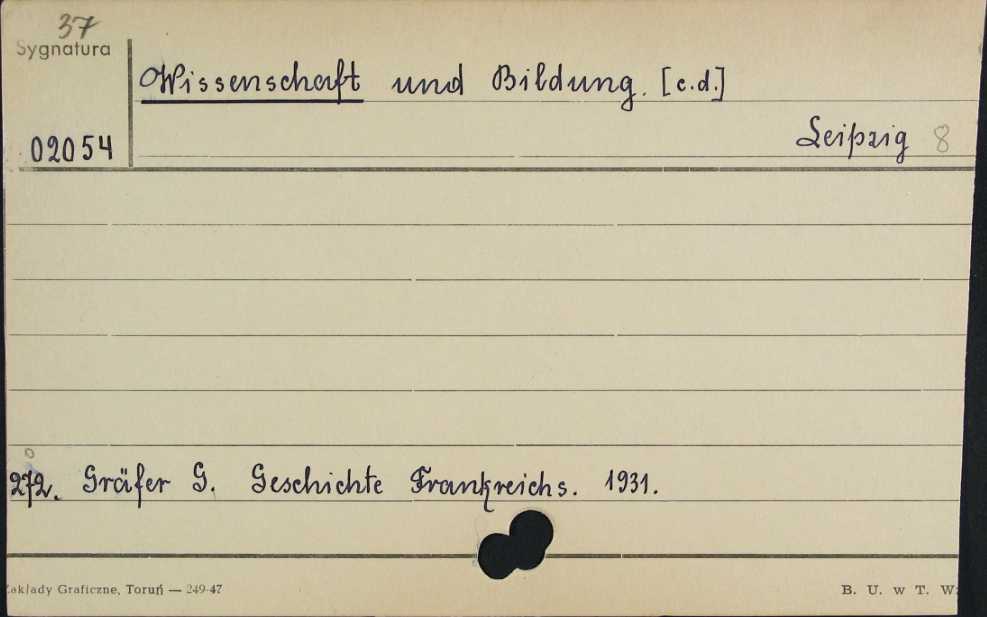 37
Sygnatura
Wissenschaft und Bildung. [c.d.]
02054
Leipzig 8
272. Gräfer G. Geschichte Frankreichs. 1931.
Zakłady Graficzne, Toruń — 249-47
B. U. w T. W: